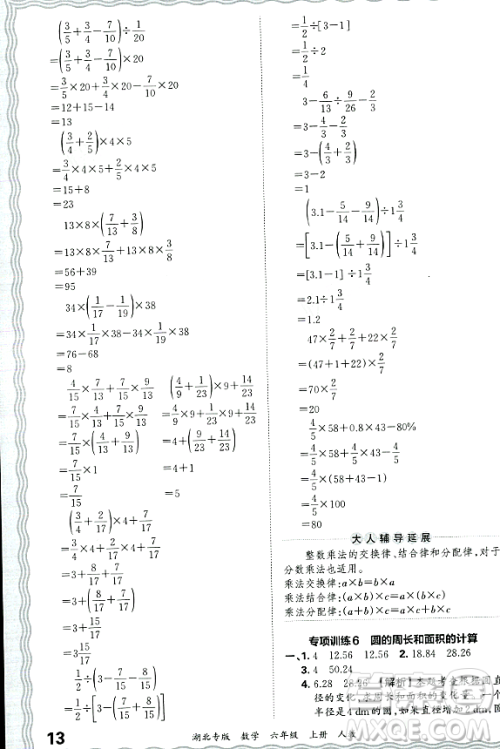 (3/5+3/4-7/10)÷1/20
=(3/5+3/4-7/10)×20
=3/5×20+3/4×20-7/10×20
=12+15-14
=13
(3/4+2/5)×4×5
=3/4×4×5+2/5×4×5
=15+8
=23
13×8×(7/13+3/8)
=13×8×7/13+13×8×3/8
=56+39
=95
34×(1/17-1/19)×38
=34×1/17×38-34×1/19×38
=76-68
=8
4/15×7/13+7/15×9/13
=7/15×4/13+7/15×9/13
=7/15×(4/13+9/13)
=7/15×1
=7/15
(4/9+1/23)×9+14/23
=4/9×9+1/23×9+14/23
=4+(9/23+14/23)
=4+1
=5
(3/4+2/17)×4+7/17
=3/4×4+2/17×4+7/17
=3+8/17+7/17
=3+(8/17+7/17)
=3+15/17
=3 15/17
1/2÷[3-(7/15+8/15)]
=1/2÷[3-1]
=1/2÷2
=1/4
3-6/13÷9/26-2/3
=3-4/3-2/3
=3-(4/3+2/3)
=3-2
=1
(3.1-5/14-9/14)÷1 3/4
=[3.1-(5/14+9/14)]÷1 3/4
=[3.1-1]÷1 3/4
=2.1÷1 3/4
=1.2
47×2/7+2/7+22×2/7
=(47+1+22)×2/7
=70×2/7
=20
4/5×58+0.8×43-80%
=4/5×58+4/5×43-4/5
=4/5×(58+43-1)
=4/5×100
=80
大人辅导延展
整数乘法的交换律、结合律和分配律,对于
分数乘法也适用。
乘法交换律:a×b=b×a
乘法结合律:(a×b)×c=a×(b×c)
乘法分配律:(a+b)×c=a×c+b×c
专项训练6 圆的周长和面积的计算
一、1. 4 12.56 12.56 2. 18.84 28.26
3. 4 50.24
4. 6.28 28.26 【解析】本题考查根据圆直
径的变化,求周长和面积的变化量
13 湖北专版 数学 六年级 上册 人教